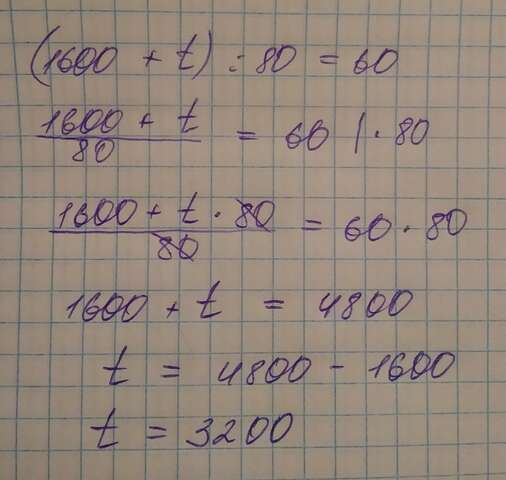 (1600 + t) : 80 = 60
1600 + t / 80 = 60 | · 80
1600 + t · 80 / 80 = 60 · 80
1600 + t = 4800
t = 4800 - 1600
t = 3200